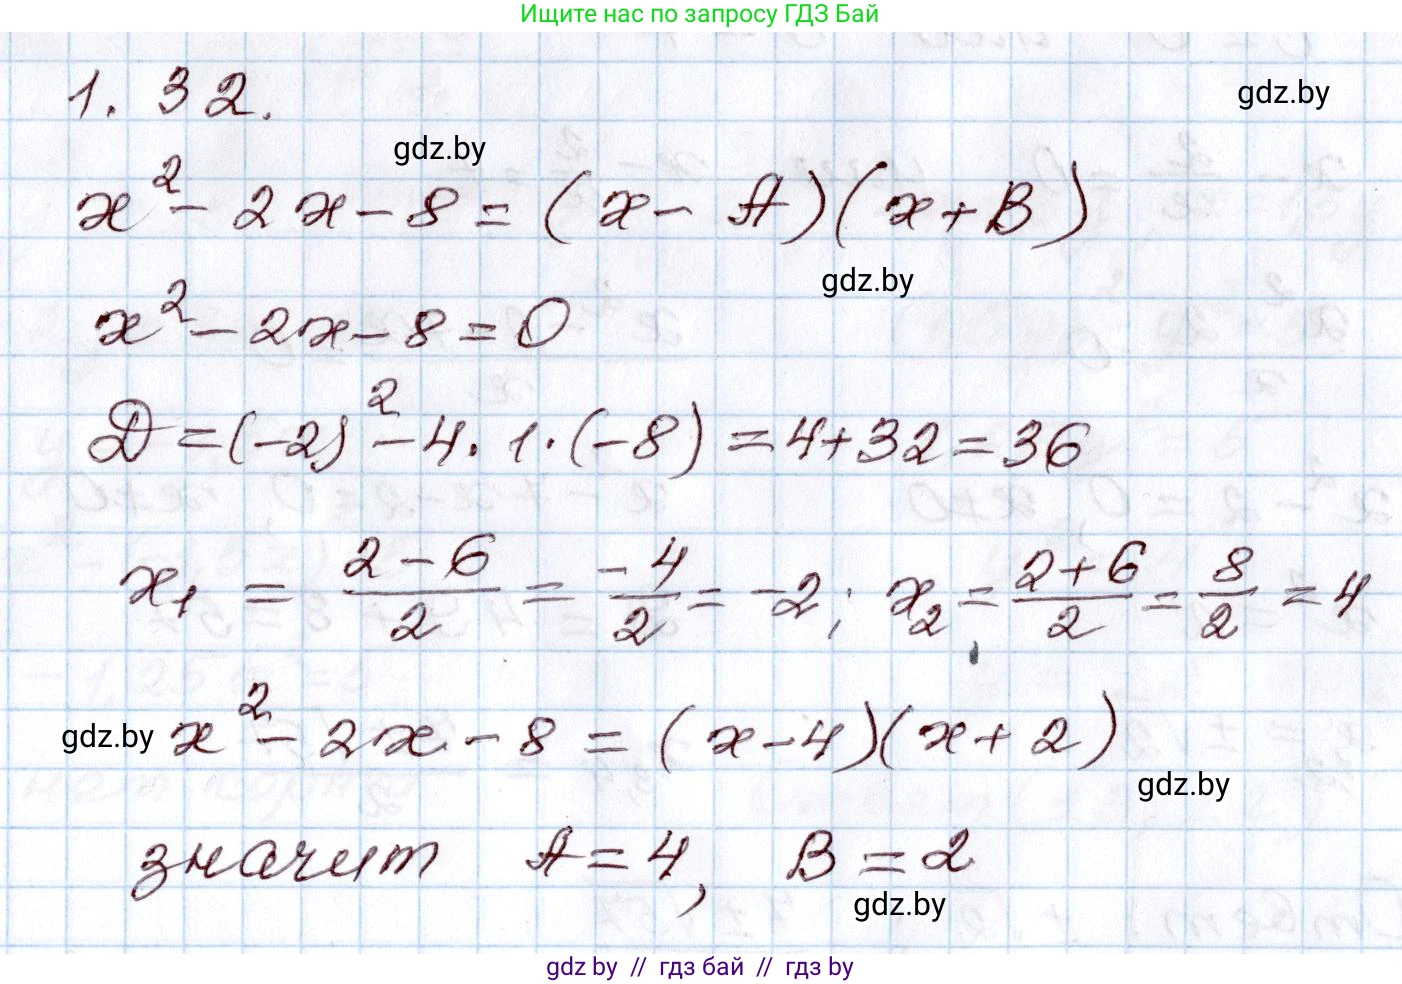 Ищите нас по запросу ГДЗ Бай
1. 32.
gdz.by
gdz.by
x² - 2x - 8 = (x - A)(x + B)
gdz.by
x² - 2x - 8 = 0
D = (-2)² - 4 · 1 · (-8) = 4 + 32 = 36
x₁ = (2 - 6)/2 = -4/2 = -2; x₂ = (2 + 6)/2 = 8/2 = 4
gdz.by x² - 2x - 8 = (x - 4)(x + 2)
gdz.by
значит A = 4, B = 2
gdz.by
gdz by // гдз бай // гдз by